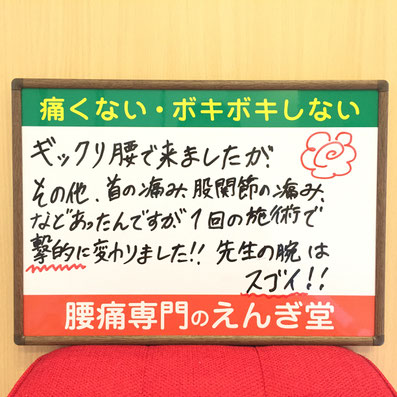 痛くない・ボキボキしない
ギックリ腰で来ましたが、
その他、首の痛み、股関節の痛み、
などあったんですが1回の施術で
撃的に変わりました!! 先生の腕は
スゴイ!!
腰痛専門のえんぎ堂